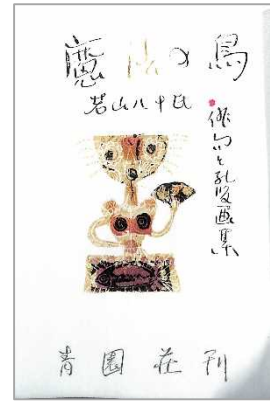 魔法の鳥
若山八十氏
俳句と孔版画集
青園荘刊